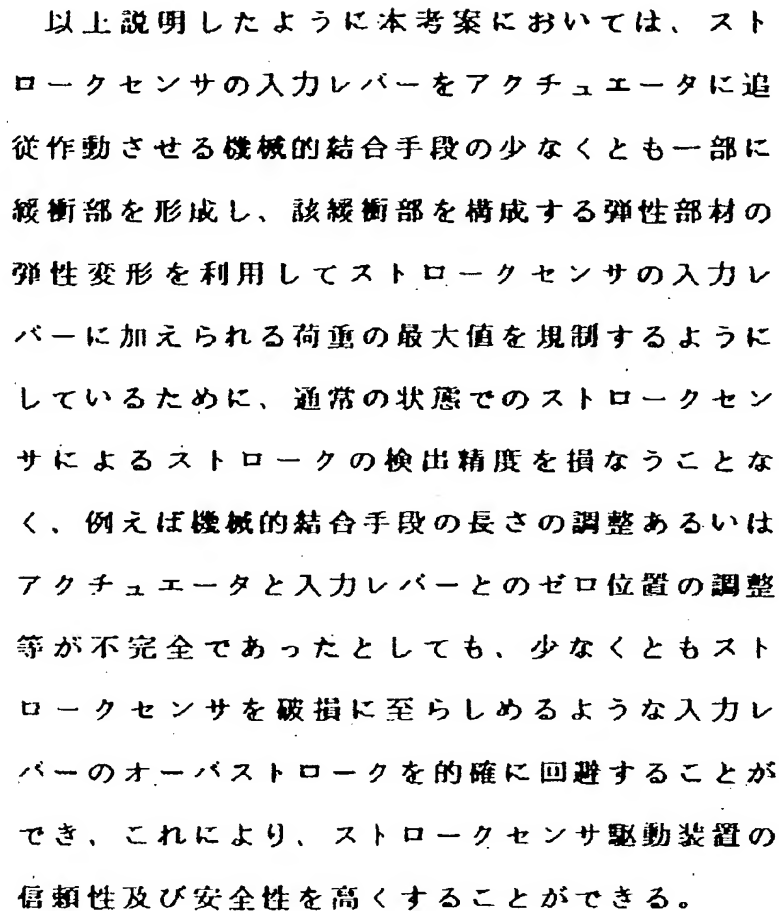 以上説明したように本考案においては、スト
ロークセンサの入力レバーをアクチュエータに追
従作動させる機械的結合手段の少なくとも一部に
緩衝部を形成し、該緩衝部を構成する弾性部材の
弾性変形を利用してストロークセンサの入力レ
バーに加えられる荷重の最大値を規制するように
しているために、通常の状態でのストロークセン
サによるストロークの検出精度を損なうことな
く、例えば機械的結合手段の長さの調整あるいは
アクチュエータと入力レバーとのゼロ位置の調整
等が不完全であったとしても、少なくともスト
ロークセンサを破損に至らしめるような入力レ
バーのオーバストロークを的確に回避することが
でき、これにより、ストロークセンサ駆動装置の
信頼性及び安全性を高くすることができる。